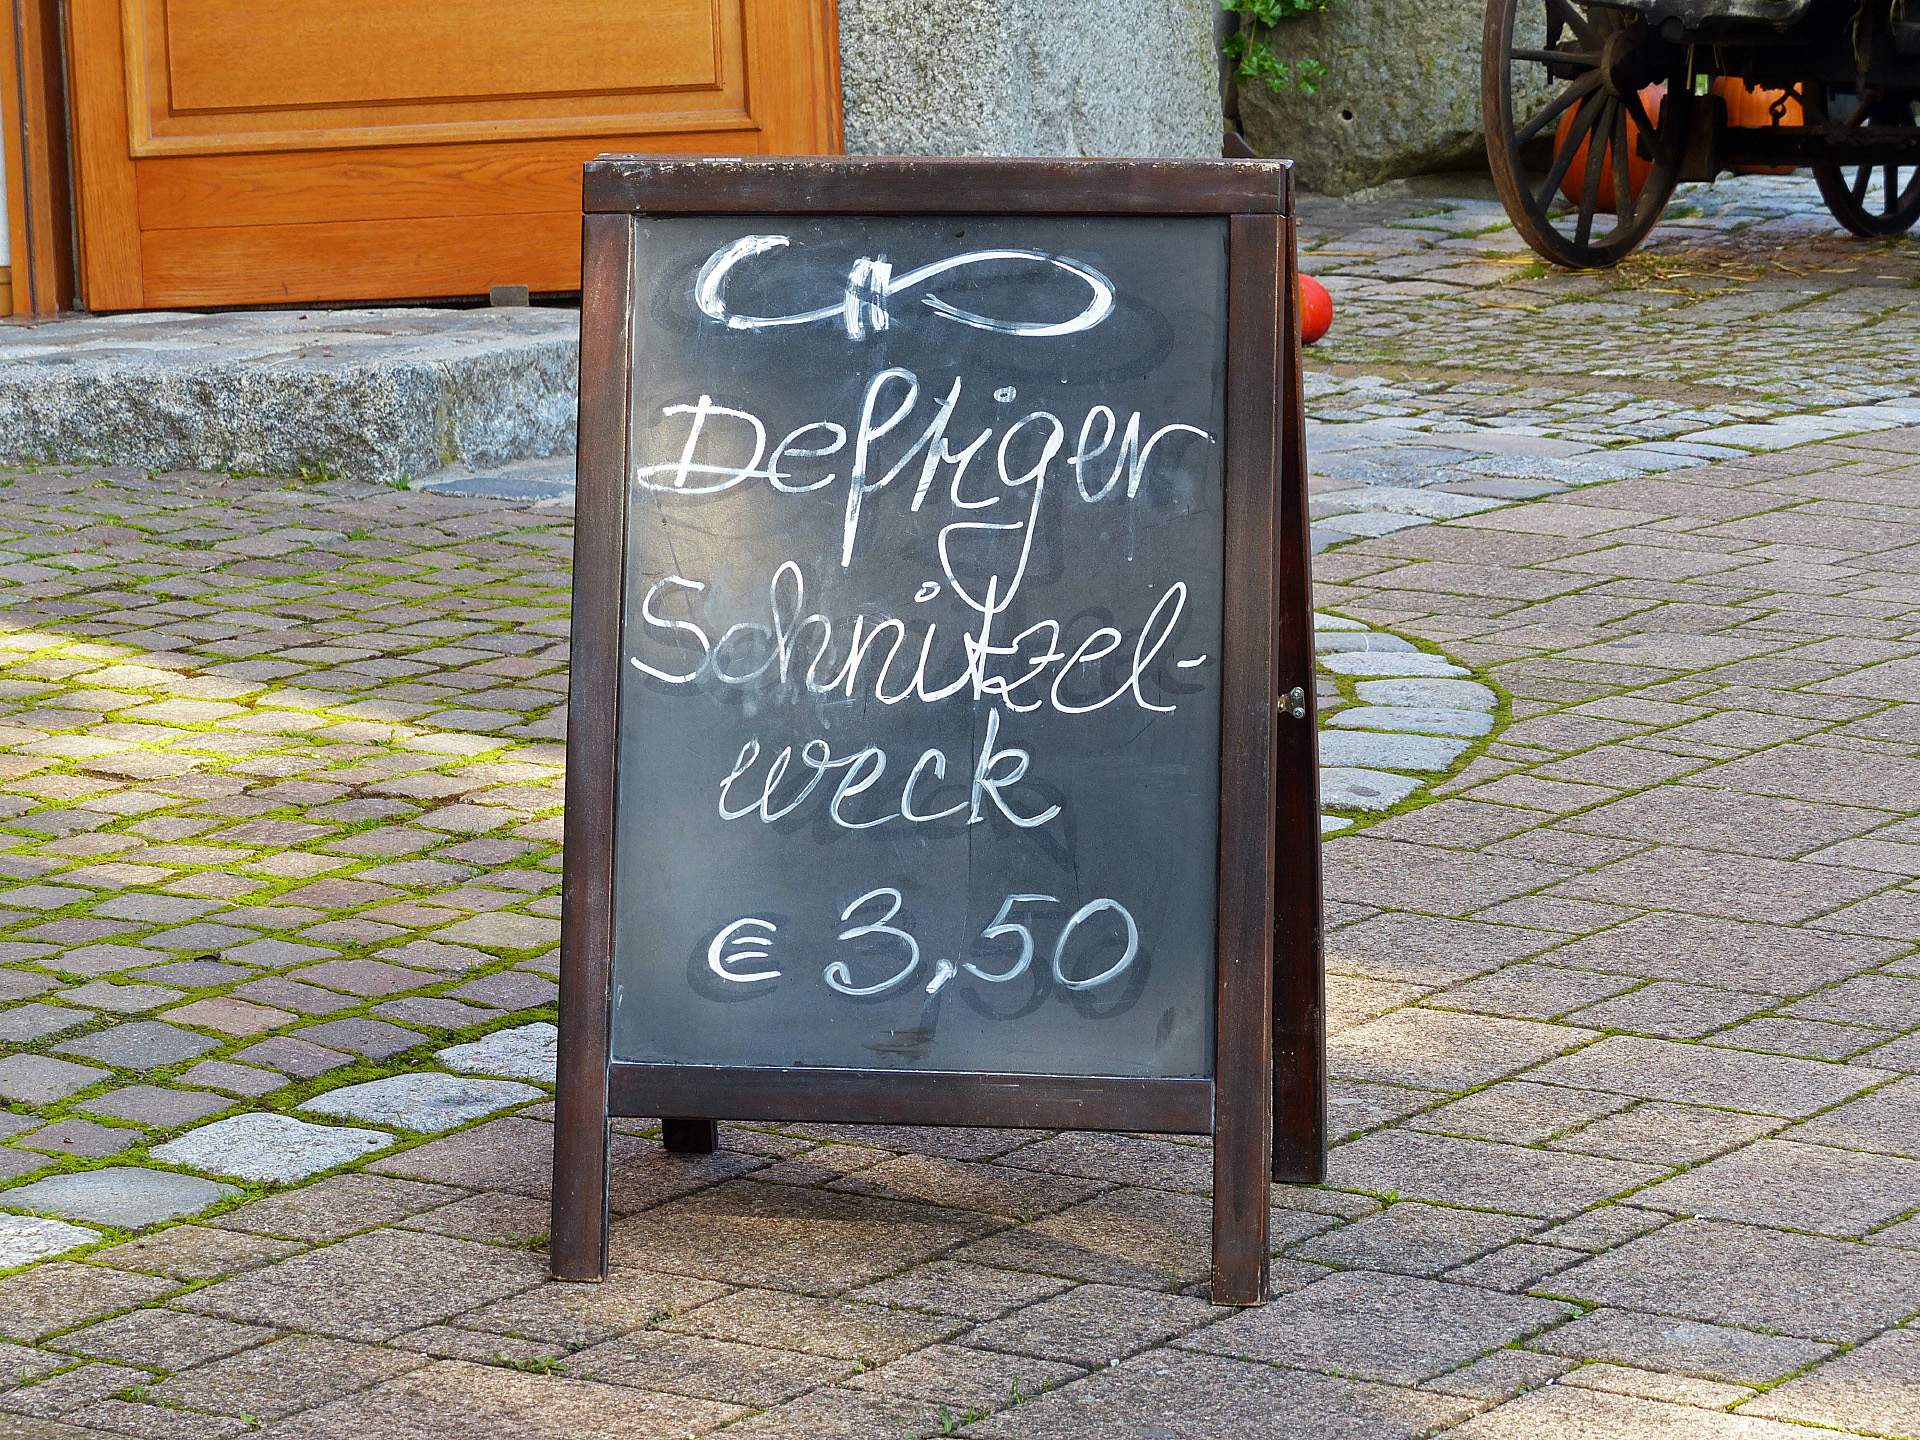 Deftiger
Schnitzel-
weck
€ 3,50